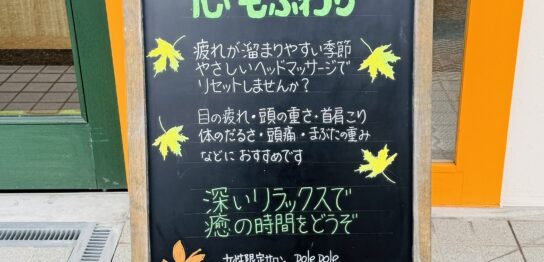 心もふわり
疲れが溜まりやすい季節
やさしいヘッドマッサージで
リセットしませんか?
目の疲れ・頭の重さ・首肩こり
体のだるさ・頭痛・まぶたの重み
などに おすすめです
深いリラックスで
癒の時間をどうぞ
女性限定サロン pole pole